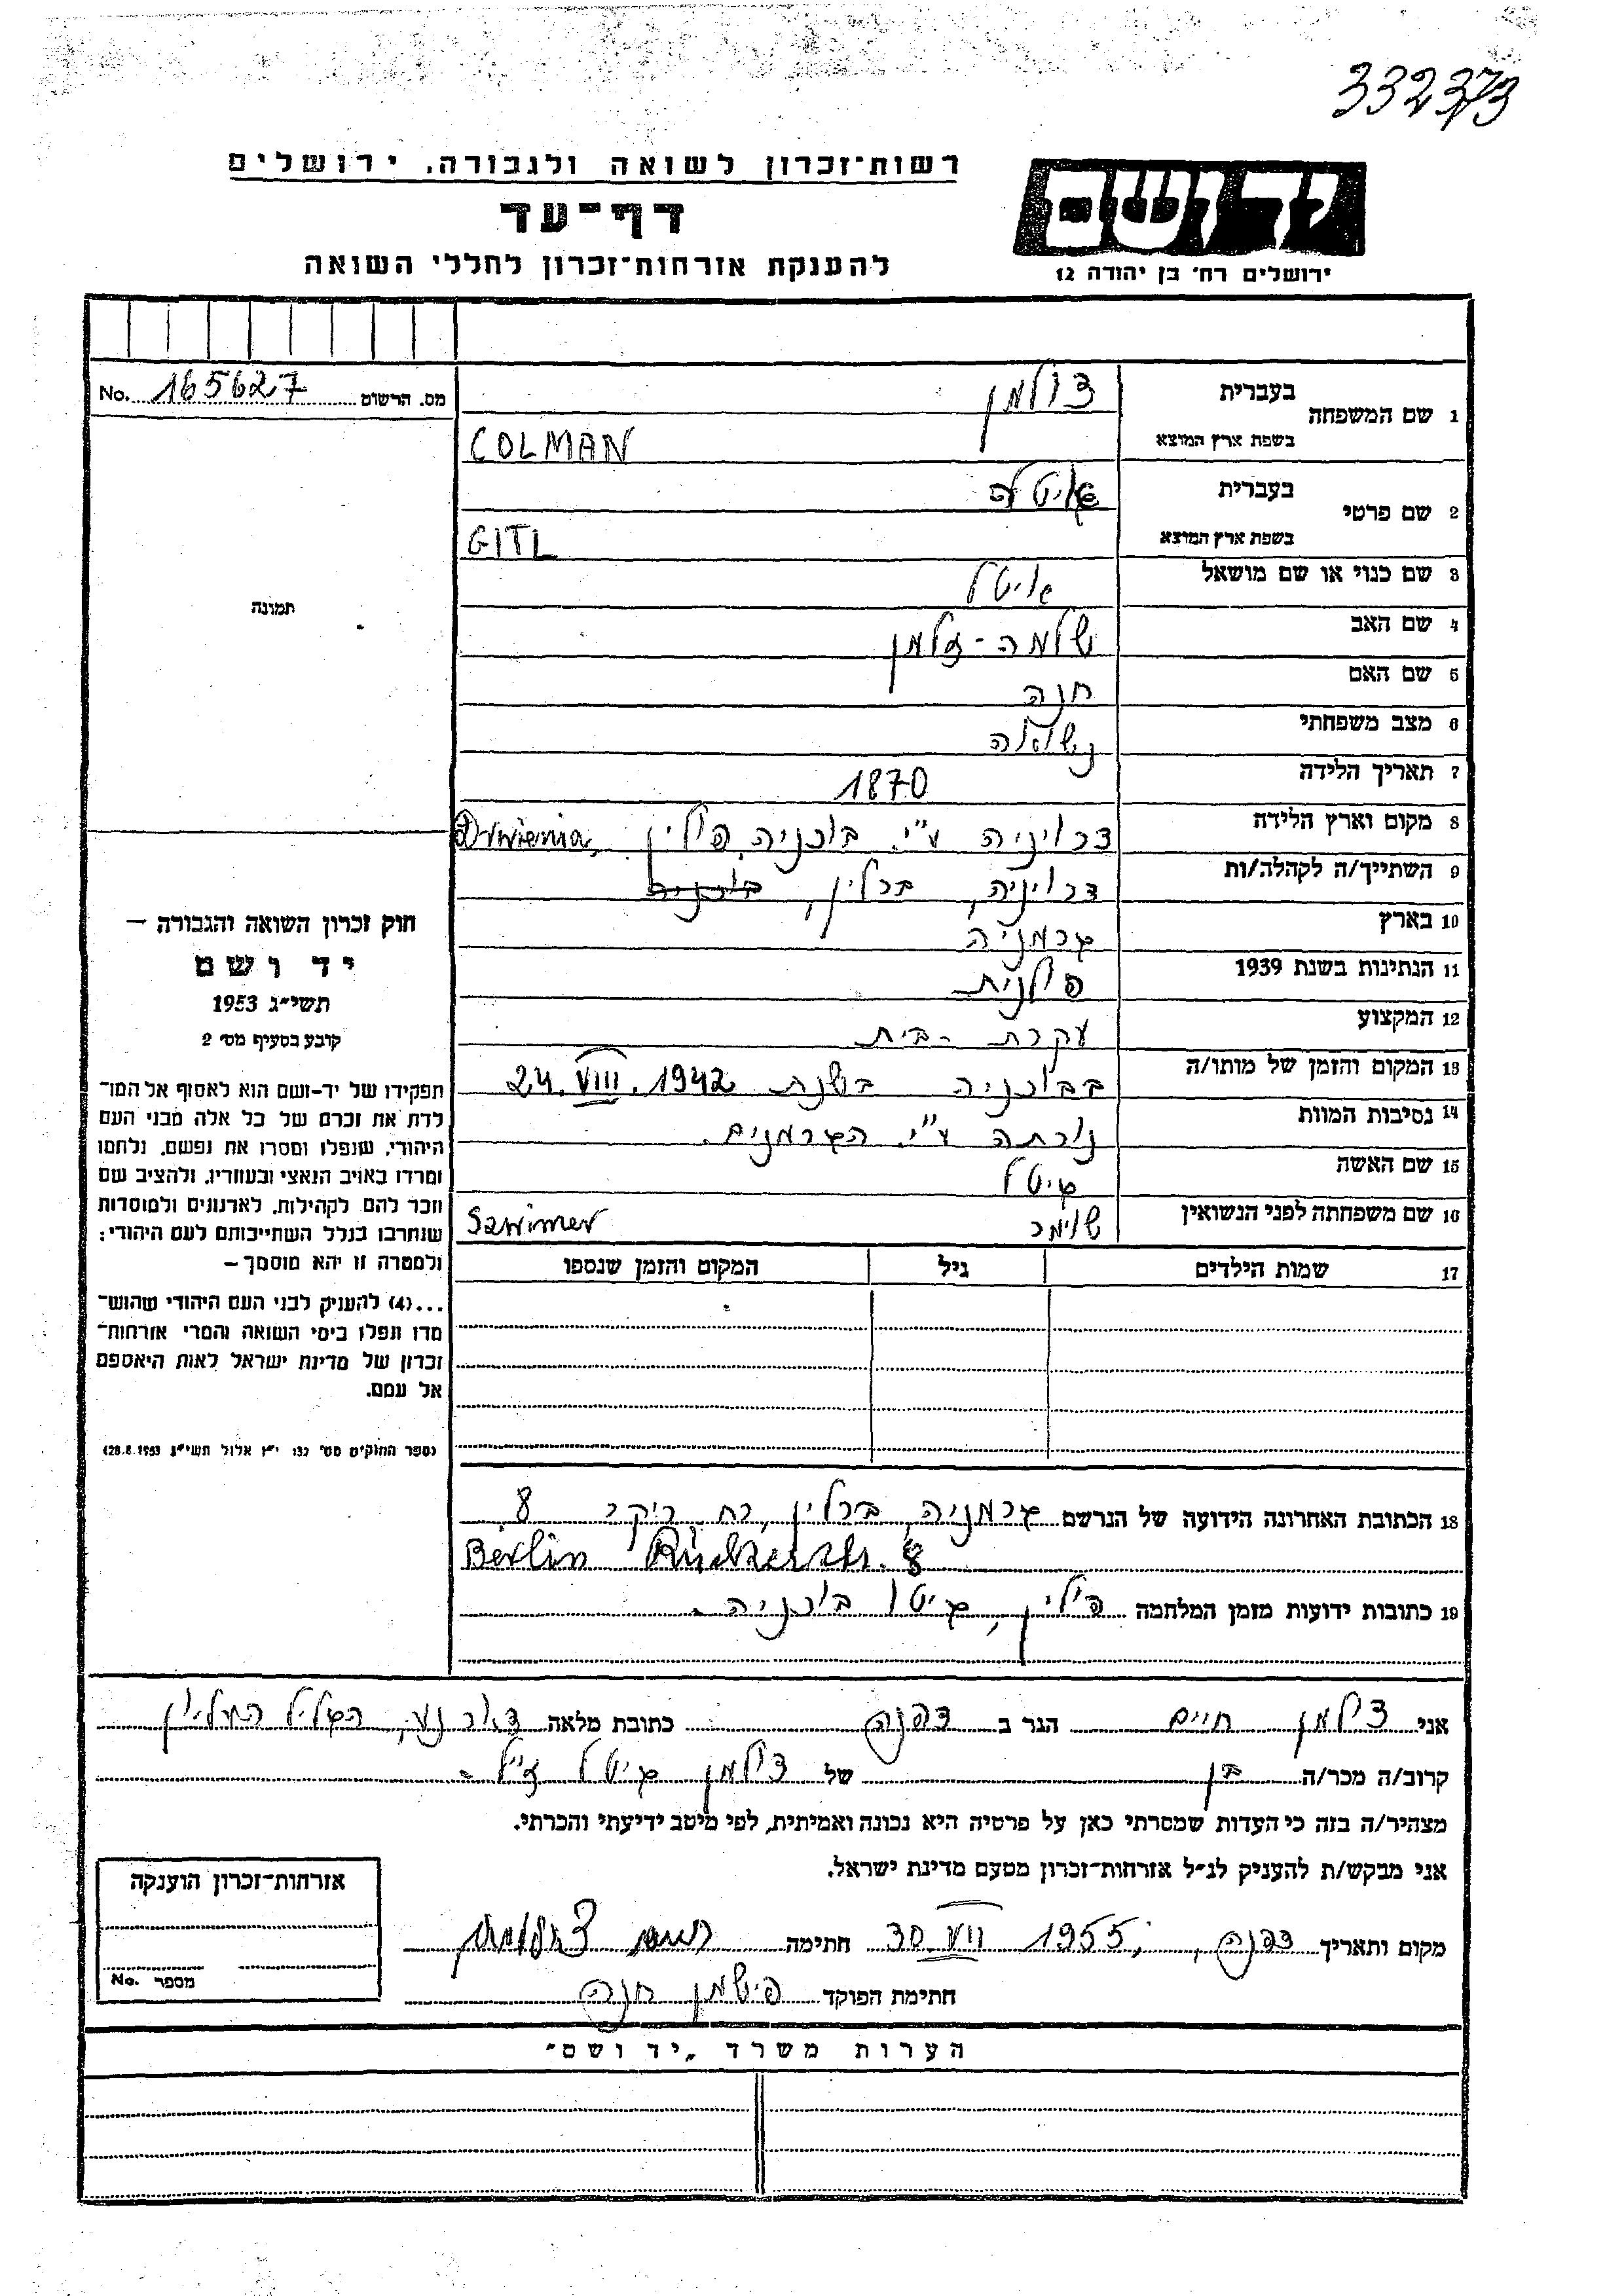 332373
רשות־זכרון לשואה ולגבורה, ירושלים
דף־עד
להענקת אזרחות־זכרון לחללי השואה
יד ושם
ירושלים רח׳ בן יהודה 12
מס. הרשום 165627 No.
1 שם המשפחה בעברית צולמן
בשפת ארץ המוצא COLMAN
2 שם פרטי בעברית גיטלה
בשפת ארץ המוצא GITL
3 שם כנוי או שם מושאל גיטל
4 שם האב שלמה-זלמן
5 שם האם חנה
6 מצב משפחתי נשואה
7 תאריך הלידה 1870
8 מקום וארץ הלידה דרויניה ע״י בוכניה, פולין Drwienia,
9 השתייך/ה לקהלה/ות דרויניה, ברלין, בוכניה
10 בארץ גרמניה
11 הנתינות בשנת 1939 פולנית
12 המקצוע עקרת-בית
13 המקום והזמן של מותו/ה בבוכניה בשנת 24.VIII.1942
14 נסיבות המוות נורתה ע״י הגרמנים.
15 שם האשה גיטל
16 שם משפחתה לפני הנשואין שוימר
17 שמות הילדים גיל המקום והזמן שנספו
תמונה
חוק זכרון השואה והגבורה —
יד ושם
תשי״ג 1953
קובע בסעיף מס׳ 2
תפקידו של יד-ושם הוא לאסוף אל המו־
לדת את זכרם של כל אלה מבני העם
היהודי, שנפלו ומסרו את נפשם, נלחמו
ומרדו באויב הנאצי ובעוזריו, ולהציב שם
וזכר להם לקהילות, לארגונים ולמוסדות
שנחרבו בגלל השתייכותם לעם היהודי;
ולמטרה זו יהא מוסמך —
...(4) להעניק לבני העם היהודי שהוש־
מדו ונפלו בימי השואה והמרי אזרחות־
זכרון של מדינת ישראל לאות היאספם
אל עמם.
(ספר החוקים מס׳ 132 י״ז אלול תשי״ג 28.8.1953)
18 הכתובת האחרונה הידועה של הנרשם גרמניה, ברלין, רח ריקר 8
Berlin Rückerstr. 8
19 כתובות ידועות מזמן המלחמה פולין, גיטו בוכניה.
אני צולמן חיים הגר ב דפנה כתובת מלאה ד.א. נע, הגליל העליון
קרוב/ה מכר/ה בן של צולמן גיטל ז״ל.
מצהיר/ה בזה כי העדות שמסרתי כאן על פרטיה היא נכונה ואמיתית, לפי מיטב ידיעתי והכרתי.
אני מבקש/ת להעניק לנ״ל אזרחות־זכרון מטעם מדינת ישראל.
מקום ותאריך דפנה, 30 VII 1955 חתימה
חתימת הפוקד פישמן חנה
אזרחות־זכרון הוענקה
מספר No.
הערות משרד „יד ושם״